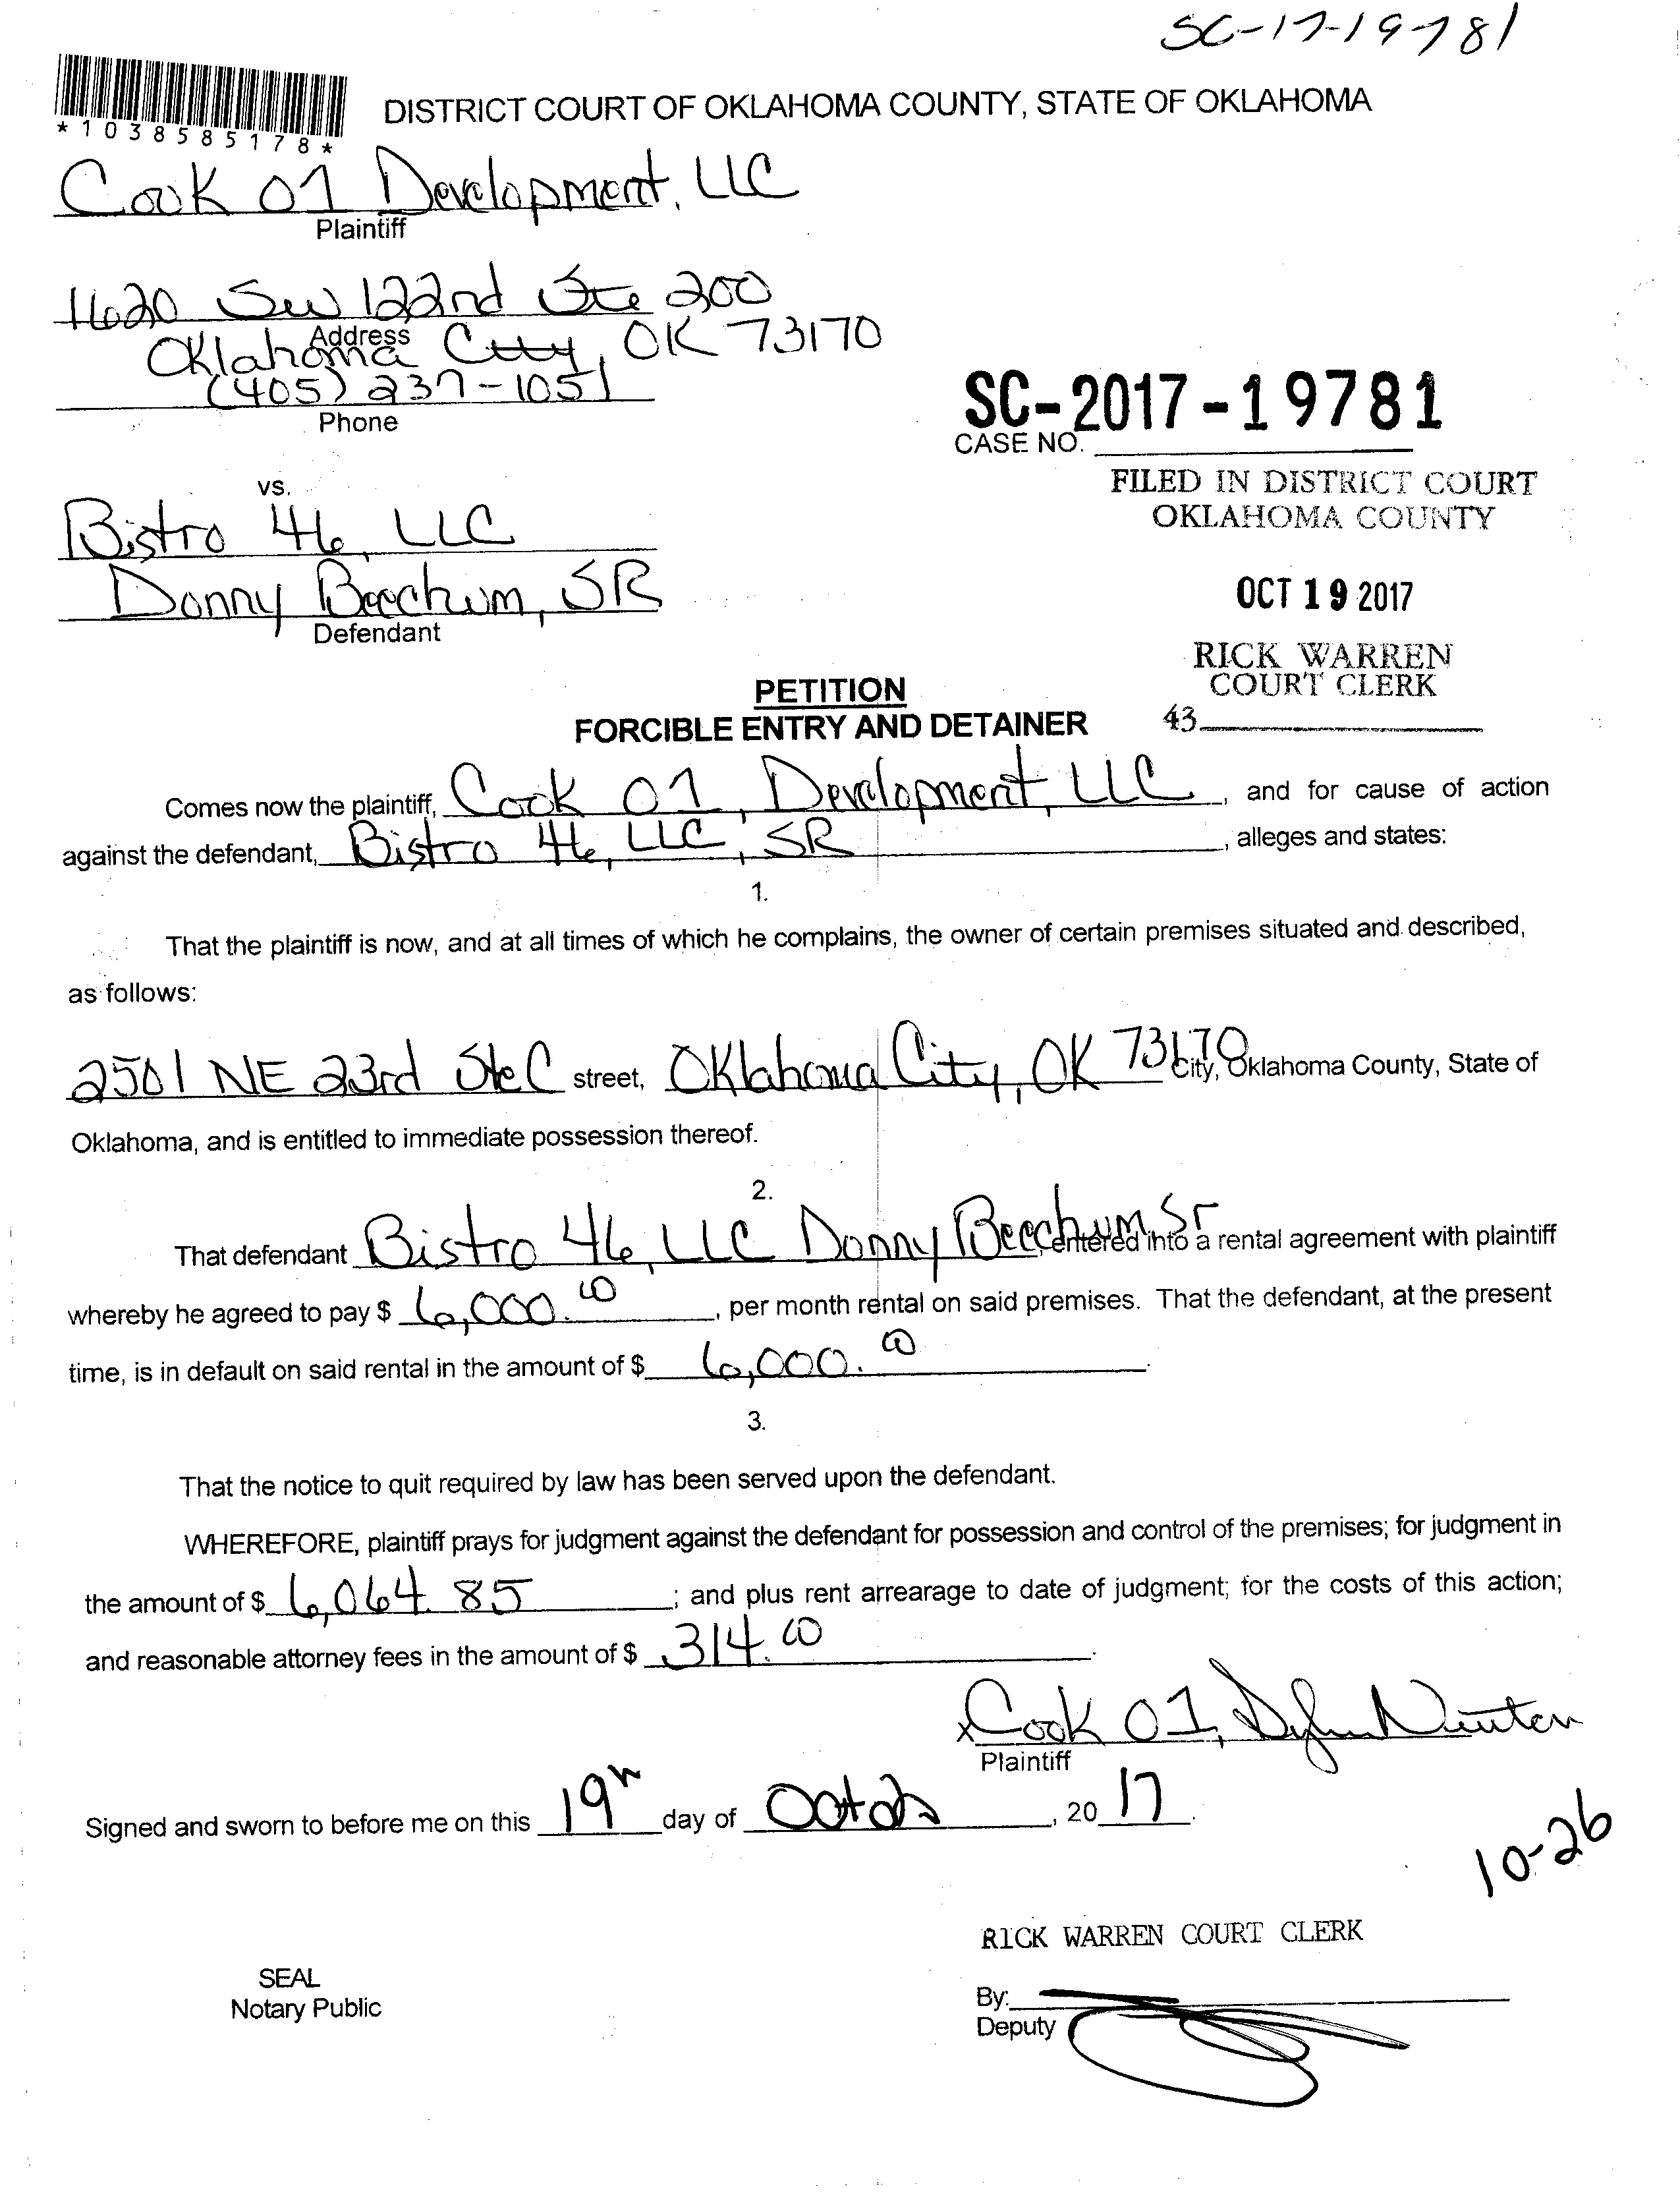 SC-17-19781
*1038585178*
DISTRICT COURT OF OKLAHOMA COUNTY, STATE OF OKLAHOMA
Cook 01 Development, LLC
Plaintiff
1620 SW 122nd Ste 200
Address
Oklahoma City, OK 73170
(405) 237-1051
Phone
SC-2017-19781
CASE NO.
FILED IN DISTRICT COURT
OKLAHOMA COUNTY
vs.
Bistro 46, LLC
Donny Beechum, SR
Defendant
OCT 19 2017
RICK WARREN
COURT CLERK
43
PETITION
FORCIBLE ENTRY AND DETAINER
Comes now the plaintiff, Cook 01, Development, LLC, and for cause of action
against the defendant, Bistro 46, LLC, SR, alleges and states:
1.
That the plaintiff is now, and at all times of which he complains, the owner of certain premises situated and described,
as follows:
2501 NE 23rd Ste C street, Oklahoma City, OK 73170 City, Oklahoma County, State of
Oklahoma, and is entitled to immediate possession thereof.
2.
That defendant Bistro 46, LLC Donny Beechum, Sr, entered into a rental agreement with plaintiff
whereby he agreed to pay $ 6,000.00, per month rental on said premises. That the defendant, at the present
time, is in default on said rental in the amount of $ 6,000.00.
3.
That the notice to quit required by law has been served upon the defendant.
WHEREFORE, plaintiff prays for judgment against the defendant for possession and control of the premises; for judgment in
the amount of $ 6,064.85; and plus rent arrearage to date of judgment; for the costs of this action;
and reasonable attorney fees in the amount of $ 314.00.
x Cook 01, Newton
Plaintiff
Signed and sworn to before me on this 19th day of October, 2017.
10-26
RICK WARREN COURT CLERK
SEAL
Notary Public
By:
Deputy